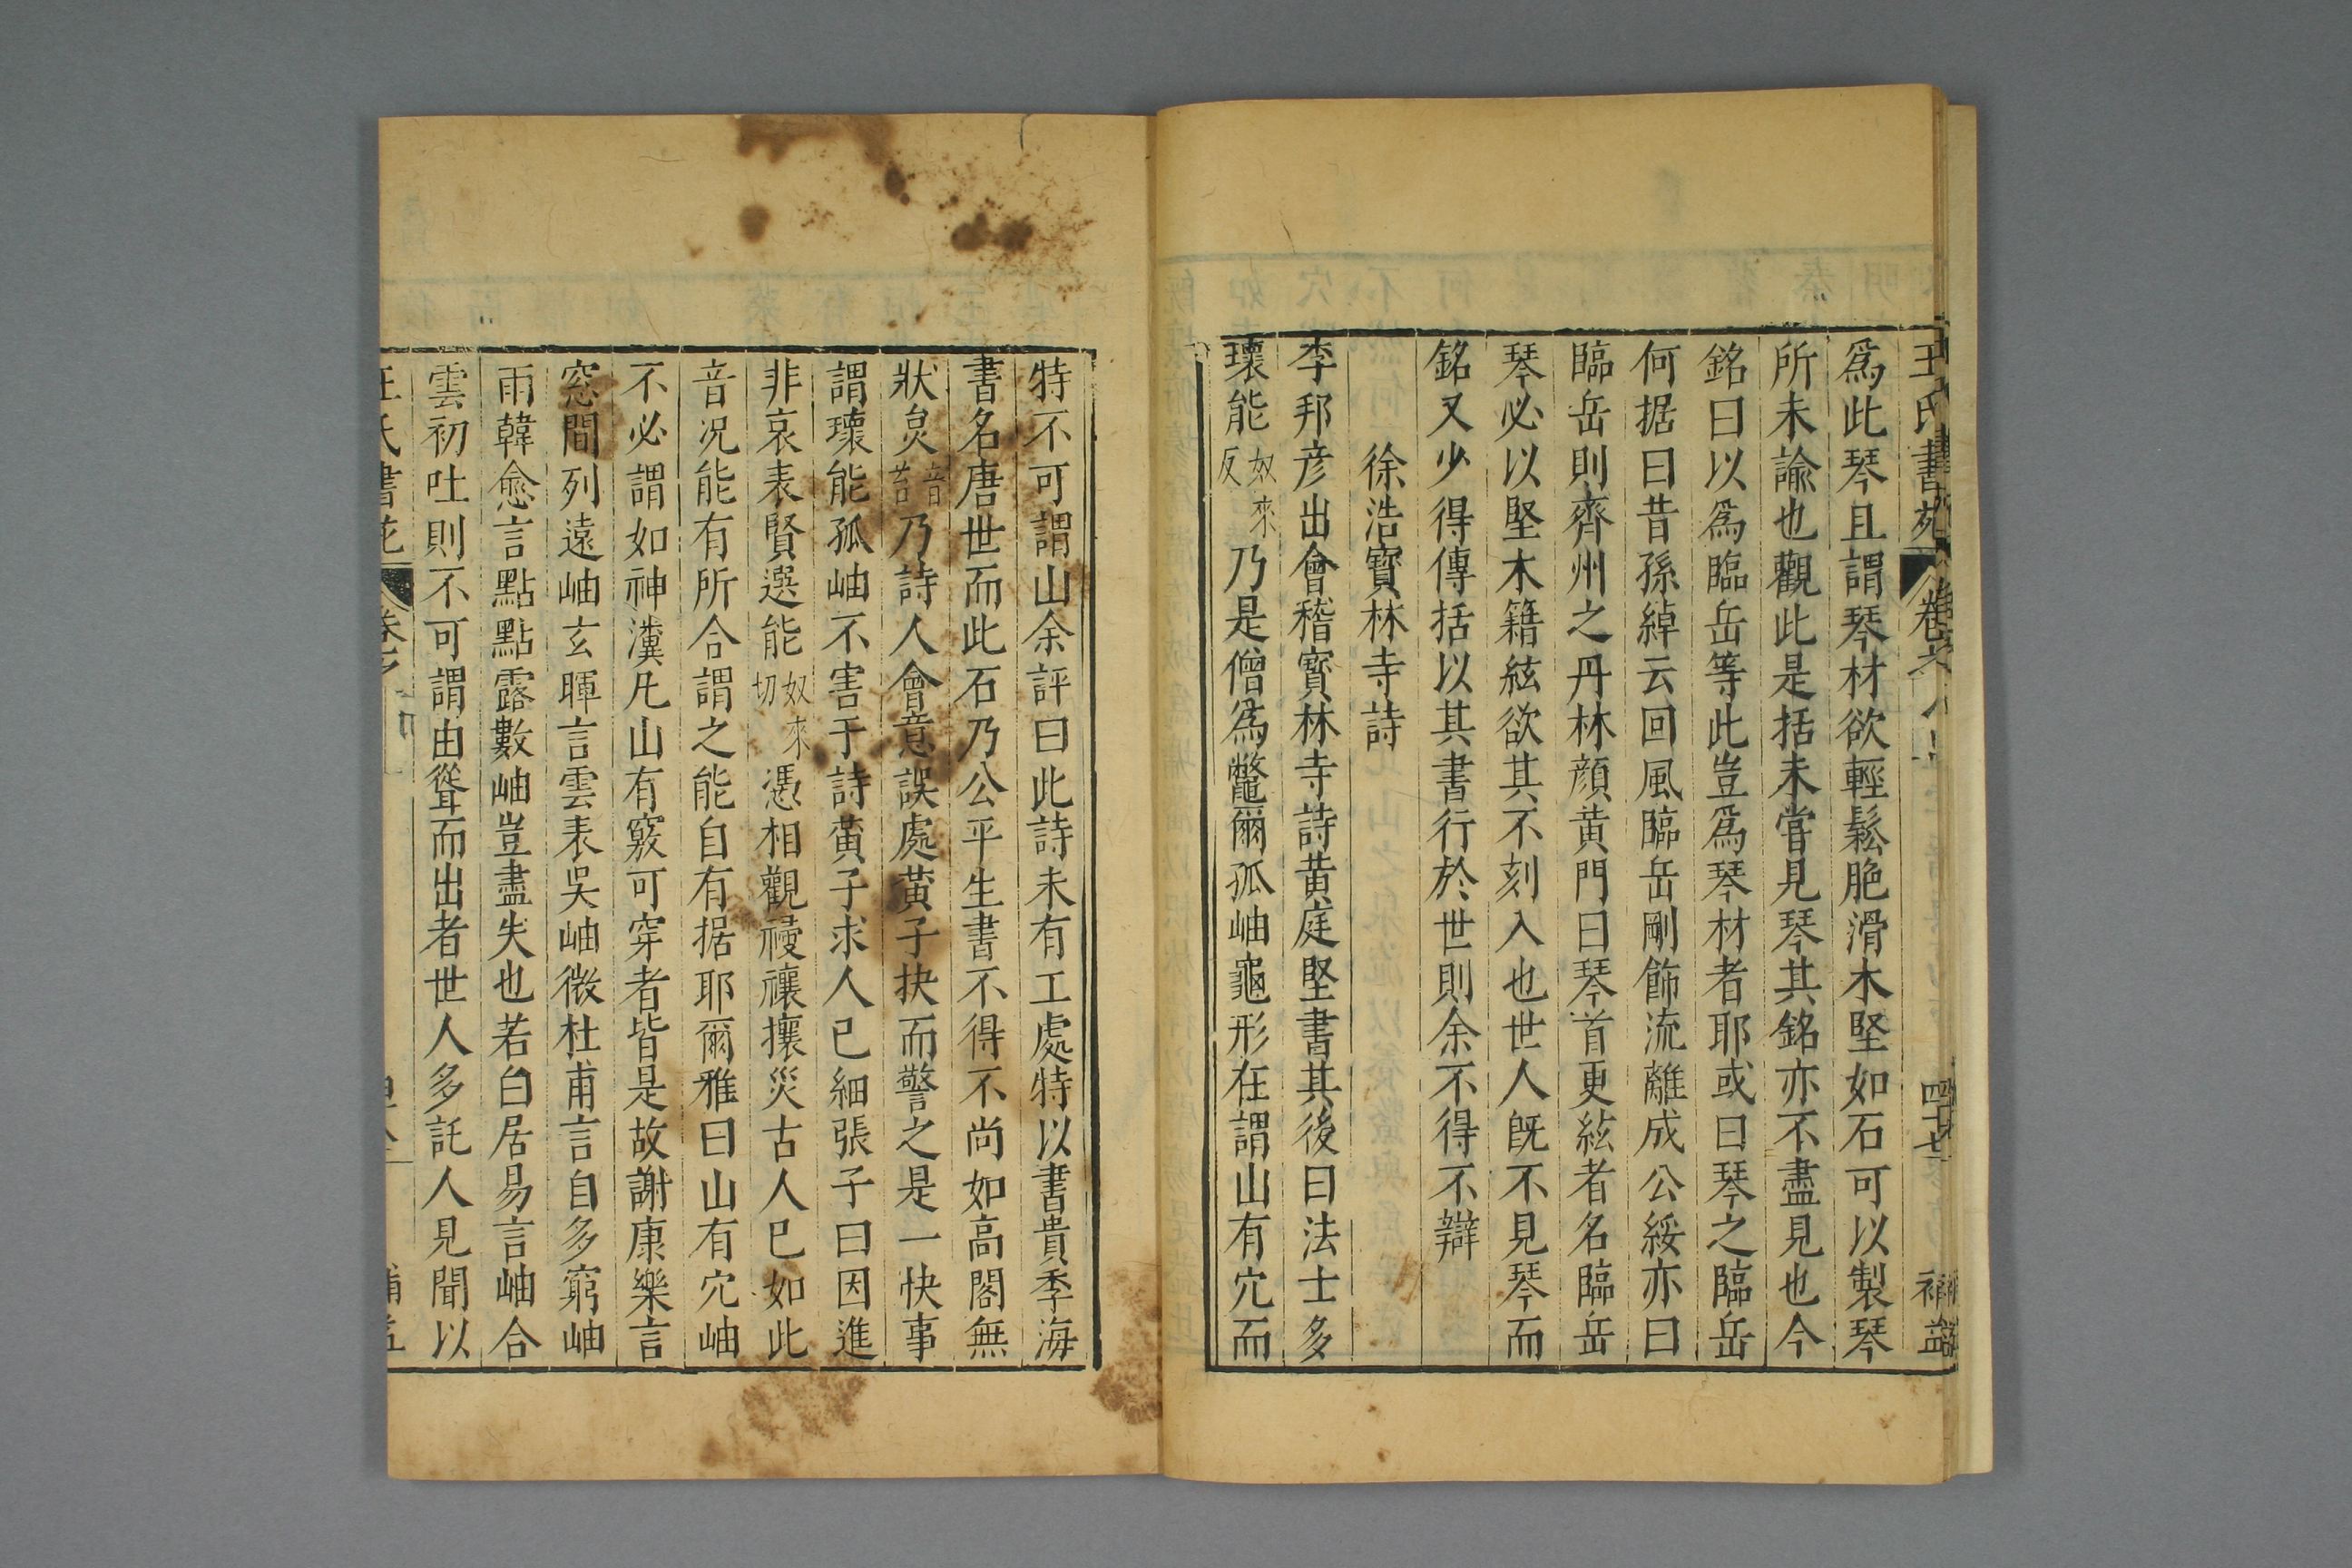 王氏書苑 卷之八 四十七 補益
爲此琴且謂琴材欲輕鬆脆滑木堅如石可以製琴
所未諭也觀此是括未嘗見琴其銘亦不盡見也今
銘曰以爲臨岳等此豈爲琴材者耶或曰琴之臨岳
何据曰昔孫綽云回風臨岳剛飾流離成公綏亦曰
臨岳則齊州之丹林顔黄門曰琴首更絃者名臨岳
琴必以堅木籍絃欲其不刻入也世人旣不見琴而
銘又少得傳括以其書行於世則余不得不辯
徐浩寳林寺詩
李邦彦出會稽寳林寺詩黄庭堅書其後曰法士多
瓌能奴來反乃是僧爲鼈爾孤岫龜形在謂山有穴而
特不可謂山余評曰此詩未有工處特以書貴季海
書名唐世而此石乃公平生書不得不尚如高閣無
狀炱音苔乃詩人會意誤處黄子抉而警之是一快事
謂瓌能孤岫不害于詩黄子求人已細張子曰因進
非哀表賢選能奴來切憑相觀祲禳攘災古人已如此
音况能有所合謂之能自有据耶爾雅曰山有穴岫
不必謂如神瀵凡山有竅可穿者皆是故謝康樂言
窓間列遠岫玄暉言雲表吳岫微杜甫言自多窮岫
雨韓愈言點點露數岫豈盡失也若白居易言岫合
雲初吐則不可謂由聳而出者世人多託人見聞以
王氏書苑